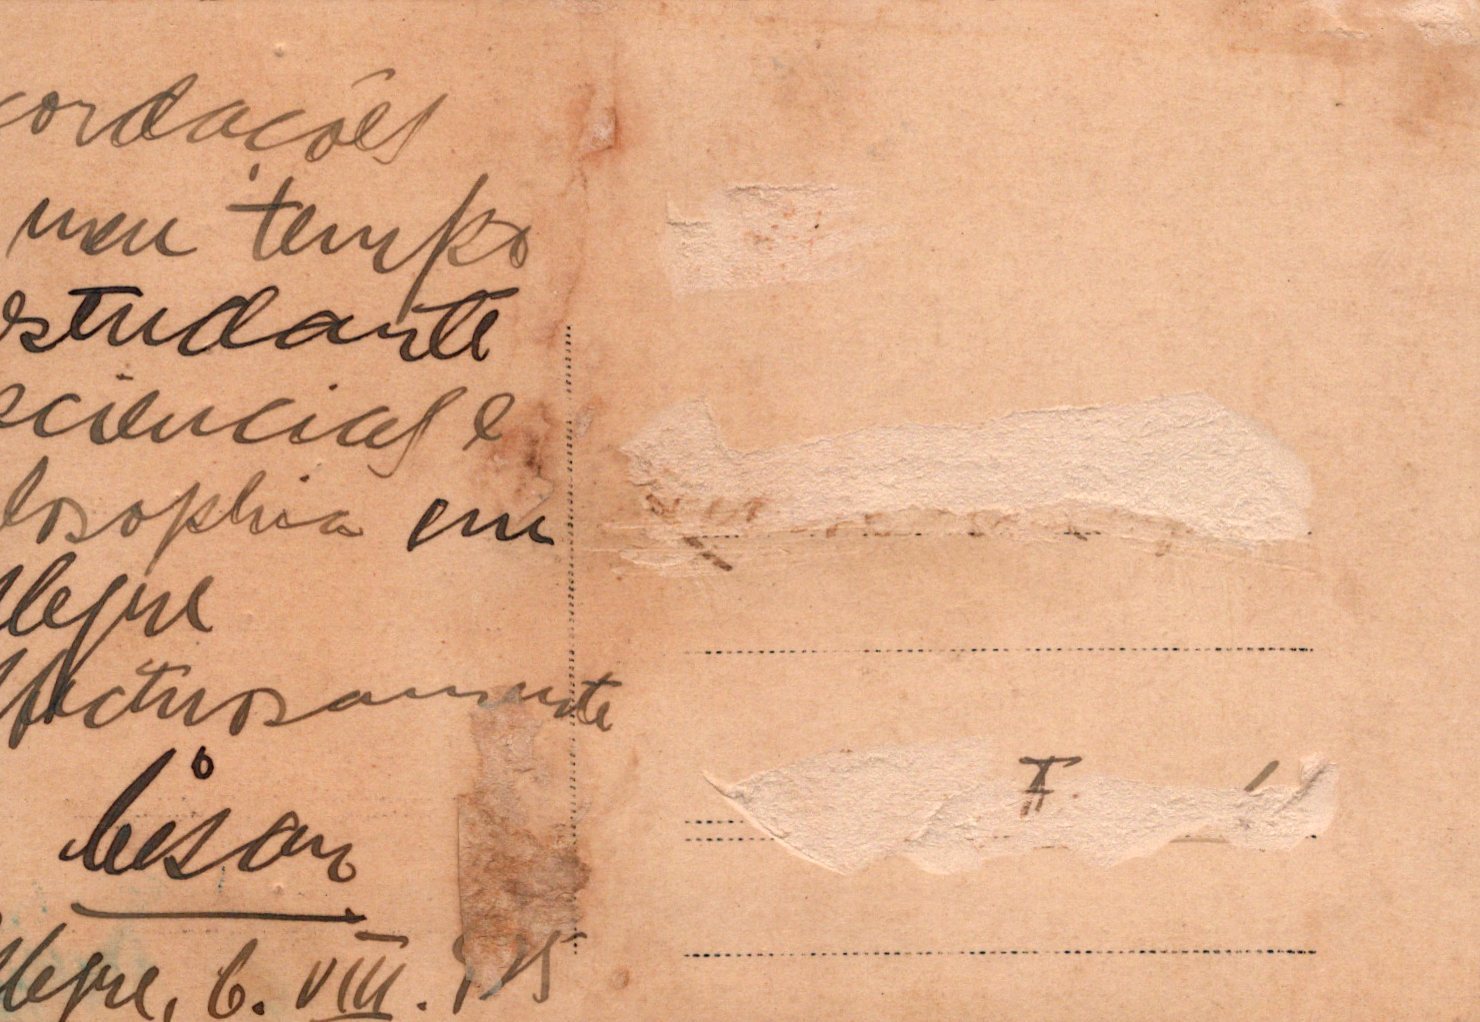 cordações
meu tempo
estudante
sciencias e
losophia em
Alegre
ffectuosamente
César
Alegre, 6. VIII. 915